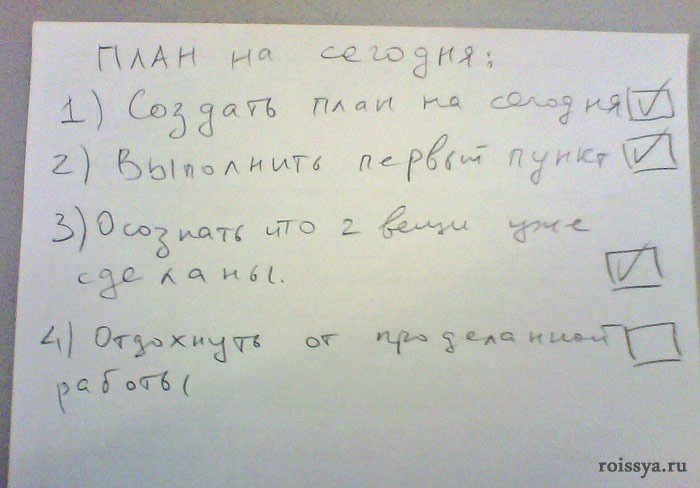 ПЛАН на сегодня:
1) Создать план на сегодня
2) Выполнить первый пункт
3) Осознать что 2 вещи уже
сделаны.
4) Отдохнуть от проделанной
работы
roissya.ru